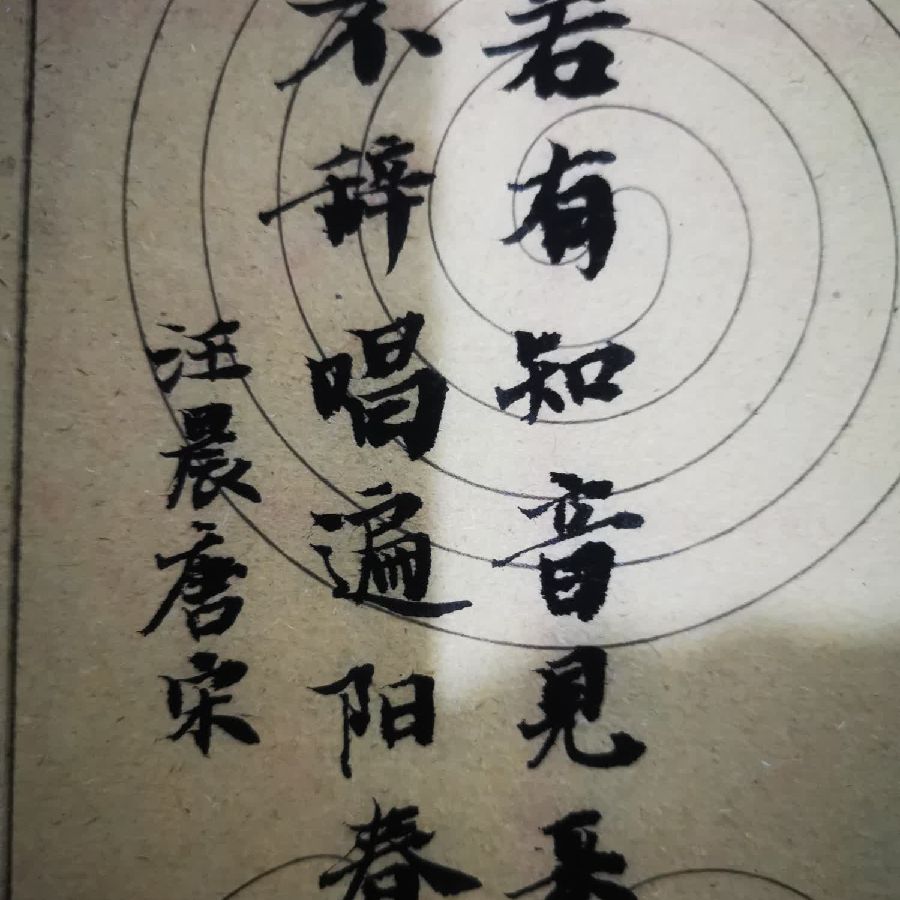 若有知音見采
不辞唱遍阳春
汪晨唐宋